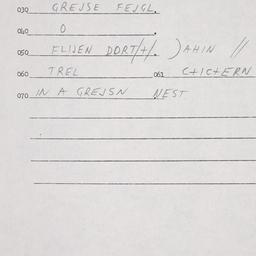 030 GREJSE FEJGL.
040 O .
050 FLIJEN DORT/+/. )AHIN //
060 TREL 061 C+IC+ERN
070 IN A GREJSN NEST